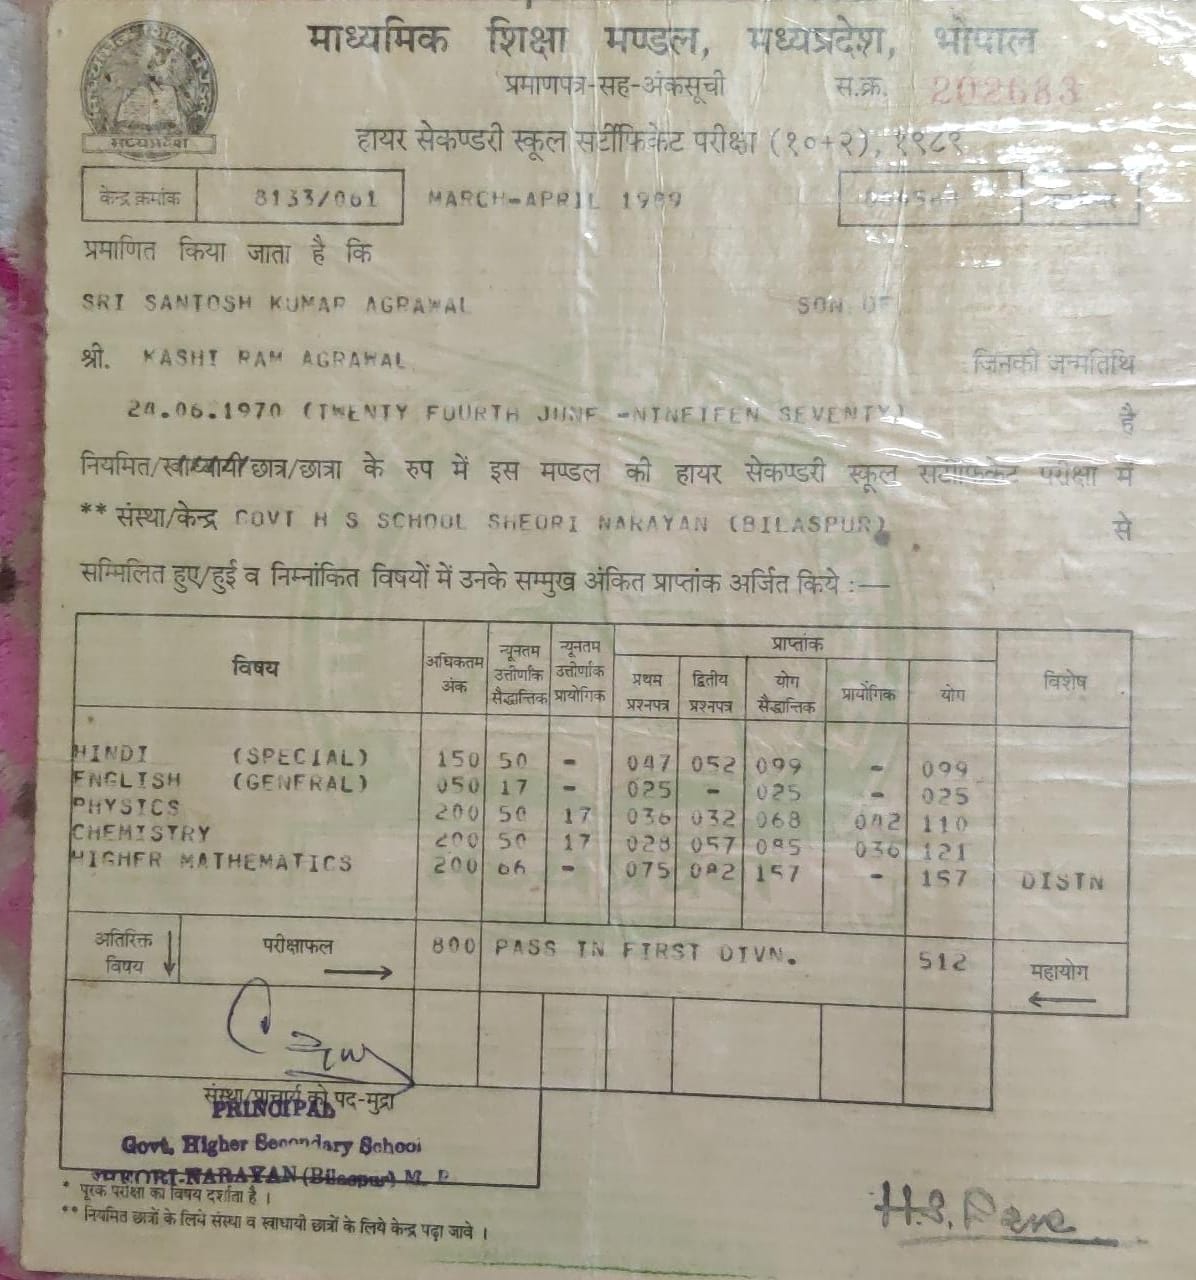 माध्यमिक शिक्षा मण्डल, मध्यप्रदेश, भोपाल
प्रमाणपत्र-सह-अंकसूची स.क्र. 202683
हायर सेकण्डरी स्कूल सर्टीफिकेट परीक्षा (१०+२), १९८९
केन्द्र क्रमांक 8133/061 MARCH-APRIL 1989
प्रमाणित किया जाता है कि
SRI SANTOSH KUMAR AGRAWAL SON OF
श्री. KASHI RAM AGRAWAL जिनकी जन्मतिथि
24.06.1970 (TWENTY FOURTH JUNE -NINETEEN SEVENTY) है
नियमित/स्वाध्यायी छात्र/छात्रा के रुप में इस मण्डल की हायर सेकण्डरी स्कूल सर्टीफिकेट परीक्षा में
** संस्था/केन्द्र GOVT H S SCHOOL SHEORI NARAYAN (BILASPUR) से
सम्मिलित हुए/हुई व निम्नांकित विषयों में उनके सम्मुख अंकित प्राप्तांक अर्जित किये :—
विषय अधिकतम अंक न्यूनतम उत्तीर्णांक सैद्धान्तिक न्यूनतम उत्तीर्णांक प्रायोगिक प्राप्तांक विशेष
प्रथम प्रश्नपत्र द्वितीय प्रश्नपत्र योग सैद्धान्तिक प्रायोगिक योग
HINDI (SPECIAL) 150 50 - 047 052 099 - 099
ENGLISH (GENERAL) 050 17 - 025 - 025 - 025
PHYSICS 200 50 17 036 032 068 042 110
CHEMISTRY 200 50 17 028 057 085 036 121
HIGHER MATHEMATICS 200 66 - 075 082 157 - 157 DISTN
अतिरिक्त विषय परीक्षाफल 800 PASS IN FIRST DIVN. 512 महायोग
संस्था/प्राचार्य की पद-मुद्रा
PRINCIPAL
Govt. Higher Secondary School
SHEORI-NARAYAN (Bilaspur) M. P.
* पूरक परीक्षा का विषय दर्शाता है ।
** नियमित छात्रों के लिये संस्था व स्वाधायी छात्रों के लिये केन्द्र पढ़ा जावे ।